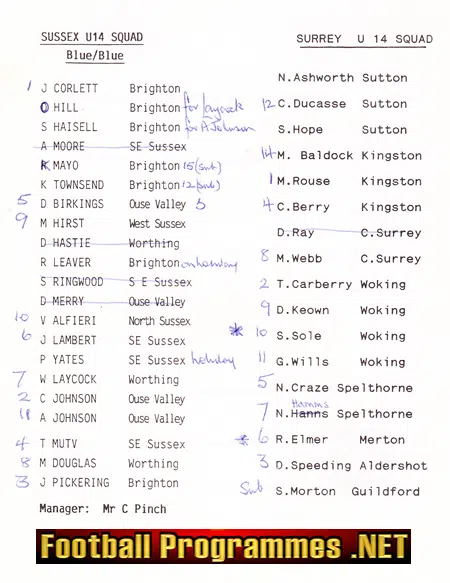 SUSSEX U14 SQUAD
Blue/Blue
1 J CORLETT Brighton
O HILL Brighton for Laycock
S HAISELL Brighton for A Johnson
A MOORE SE Sussex
K MAYO Brighton 15 (sub)
K TOWNSEND Brighton 12 (sub)
5 D BIRKINGS Ouse Valley 5
9 M HIRST West Sussex
D HASTIE Worthing
R LEAVER Brighton on holiday
S RINGWOOD S E Sussex
D MERRY Ouse Valley
10 V ALFIERI North Sussex
6 J LAMBERT SE Sussex
P YATES SE Sussex holiday
7 W LAYCOCK Worthing
2 C JOHNSON Ouse Valley
11 A JOHNSON Ouse Valley
4 T MUTV SE Sussex
8 M DOUGLAS Worthing
3 J PICKERING Brighton
Manager: Mr C Pinch
SURREY U 14 SQUAD
N.Ashworth Sutton
12 C.Ducasse Sutton
S.Hope Sutton
14 M. Baldock Kingston
1 M.Rouse Kingston
4 C.Berry Kingston
D.Ray C.Surrey
8 M.Webb C.Surrey
2 T.Carberry Woking
9 D.Keown Woking
* 10 S.Sole Woking
11 G.Wills Woking
5 N.Craze Spelthorne
Hamms
7 N.Hanns Spelthorne
* 6 R.Elmer Merton
3 D.Speeding Aldershot
Sub S.Morton Guildford
Football Programmes .NET